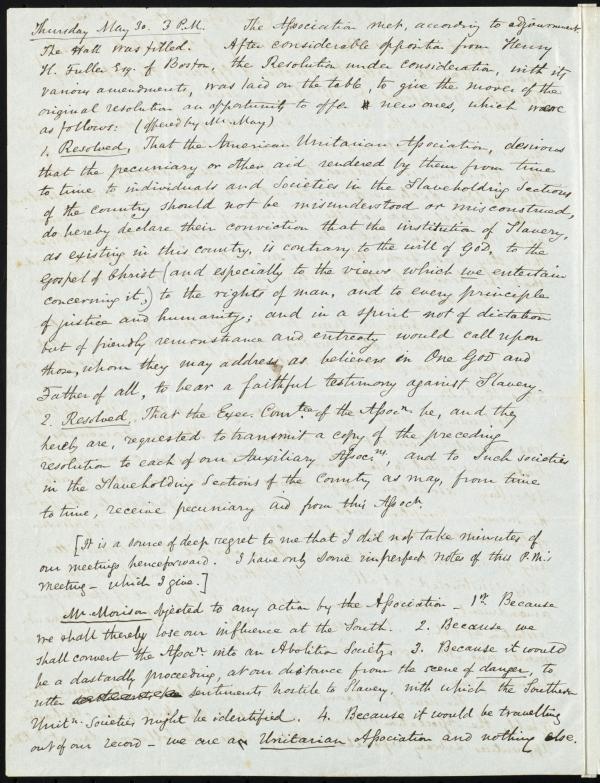 Thursday May 30. 3 P.M. The Association met, according to adjournment.
The Hall was filled. After considerable opposition from Henry
H. Fuller Esq. of Boston, the Resolution under consideration, with its
various amendments, was laid on the table, to give the mover of the
original resolution an opportunity to offer new ones, which were
as follows: (offered by Mr. May)
1. Resolved, That the American Unitarian Association, desirous
that the pecuniary or other aid rendered by them from time
to time to individuals and Societies in the Slaveholding Sections
of the country should not be misunderstood or misconstrued,
do hereby declare their conviction that the institution of Slavery,
as existing in this country, is contrary to the will of God, to the
Gospel of Christ (and especially to the views which we entertain
concerning it,) to the rights of man, and to every principle
of justice and humanity; and in a spirit not of dictation
but of friendly remonstrance and entreaty would call upon
those, whom they may address as believers in One God and
Father of all, to bear a faithful testimony against Slavery.
2. Resolved, That the Exec. Comtee. of the Assocn. be, and they
hereby are, requested to transmit a copy of the preceding
resolution to each of our Auxiliary Associns, and to Such societies
in the Slaveholding Sections of the Country as may, from time
to time, receive pecuniary aid from this Assocn.
[It is a source of deep regret to me that I did not take minutes of
our meetings henceforward. I have only some imperfect notes of this P.M.'s
meeting – which I give.]
Mr. Morison objected to any action by the Association – 1st. Because
we shall thereby lose our influence at the South. 2. Because we
shall convert the Assocn. into an Abolition Society. 3. Because it would
be a dastardly proceeding, at our distance from the scene of danger, to
utter sentiments hostile to Slavery, with which the Southern
Unitn. Societies might be identified. 4. Because it would be travelling
out of our record – we are an Unitarian Association and nothing else.